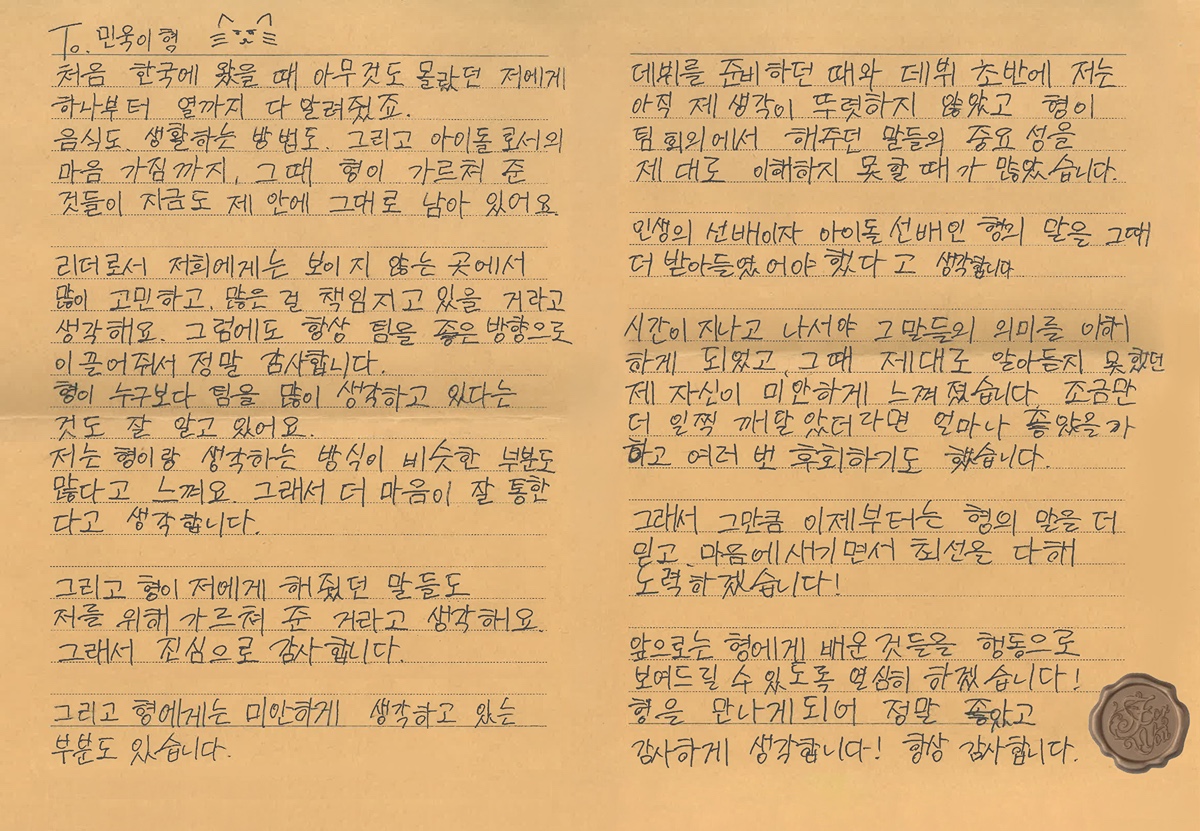 To. 민욱이형
처음 한국에 왔을 때 아무것도 몰랐던 저에게
하나부터 열까지 다 알려줬죠.
음식도, 생활하는 방법도. 그리고 아이돌로서의
마음 가짐까지, 그때 형이 가르쳐 준
것들이 지금도 제 안에 그대로 남아 있어요.
리더로서 저희에게는 보이지 않는 곳에서
많이 고민하고, 많은 걸 책임지고 있을 거라고
생각해요. 그럼에도 항상 팀을 좋은 방향으로
이끌어줘서 정말 감사합니다.
형이 누구보다 팀을 많이 생각하고 있다는
것도 잘 알고 있어요.
저는 형이랑 생각하는 방식이 비슷한 부분도
많다고 느껴요. 그래서 더 마음이 잘 통한
다고 생각합니다.
그리고 형이 저에게 해줬던 말들도
저를 위해 가르쳐 준 거라고 생각해요.
그래서 진심으로 감사합니다.
그리고 형에게는 미안하게 생각하고 있는
부분도 있습니다.
데뷔를 준비하던 때와 데뷔 초반에 저는
아직 제 생각이 뚜렷하지 않았고 형이
팀 회의에서 해주던 말들의 중요성을
제대로 이해하지 못할 때가 많았습니다.
인생의 선배이자 아이돌 선배인 형의 말을 그때
더 받아들였어야 했다고 생각합니다
시간이 지나고 나서야 그 말들의 의미를 이해
하게 되었고, 그때 제대로 알아듣지 못했던
제 자신이 미안하게 느껴졌습니다. 조금만
더 일찍 깨달았더라면 얼마나 좋았을까
하고 여러 번 후회하기도 했습니다.
그래서 그만큼 이제부터는 형의 말을 더
믿고, 마음에 새기면서 최선을 다해
노력하겠습니다!
앞으로는 형에게 배운 것들을 행동으로
보여드릴 수 있도록 열심히 하겠습니다!
형을 만나게되어 정말 좋았고
감사하게 생각합니다! 항상 감사합니다.